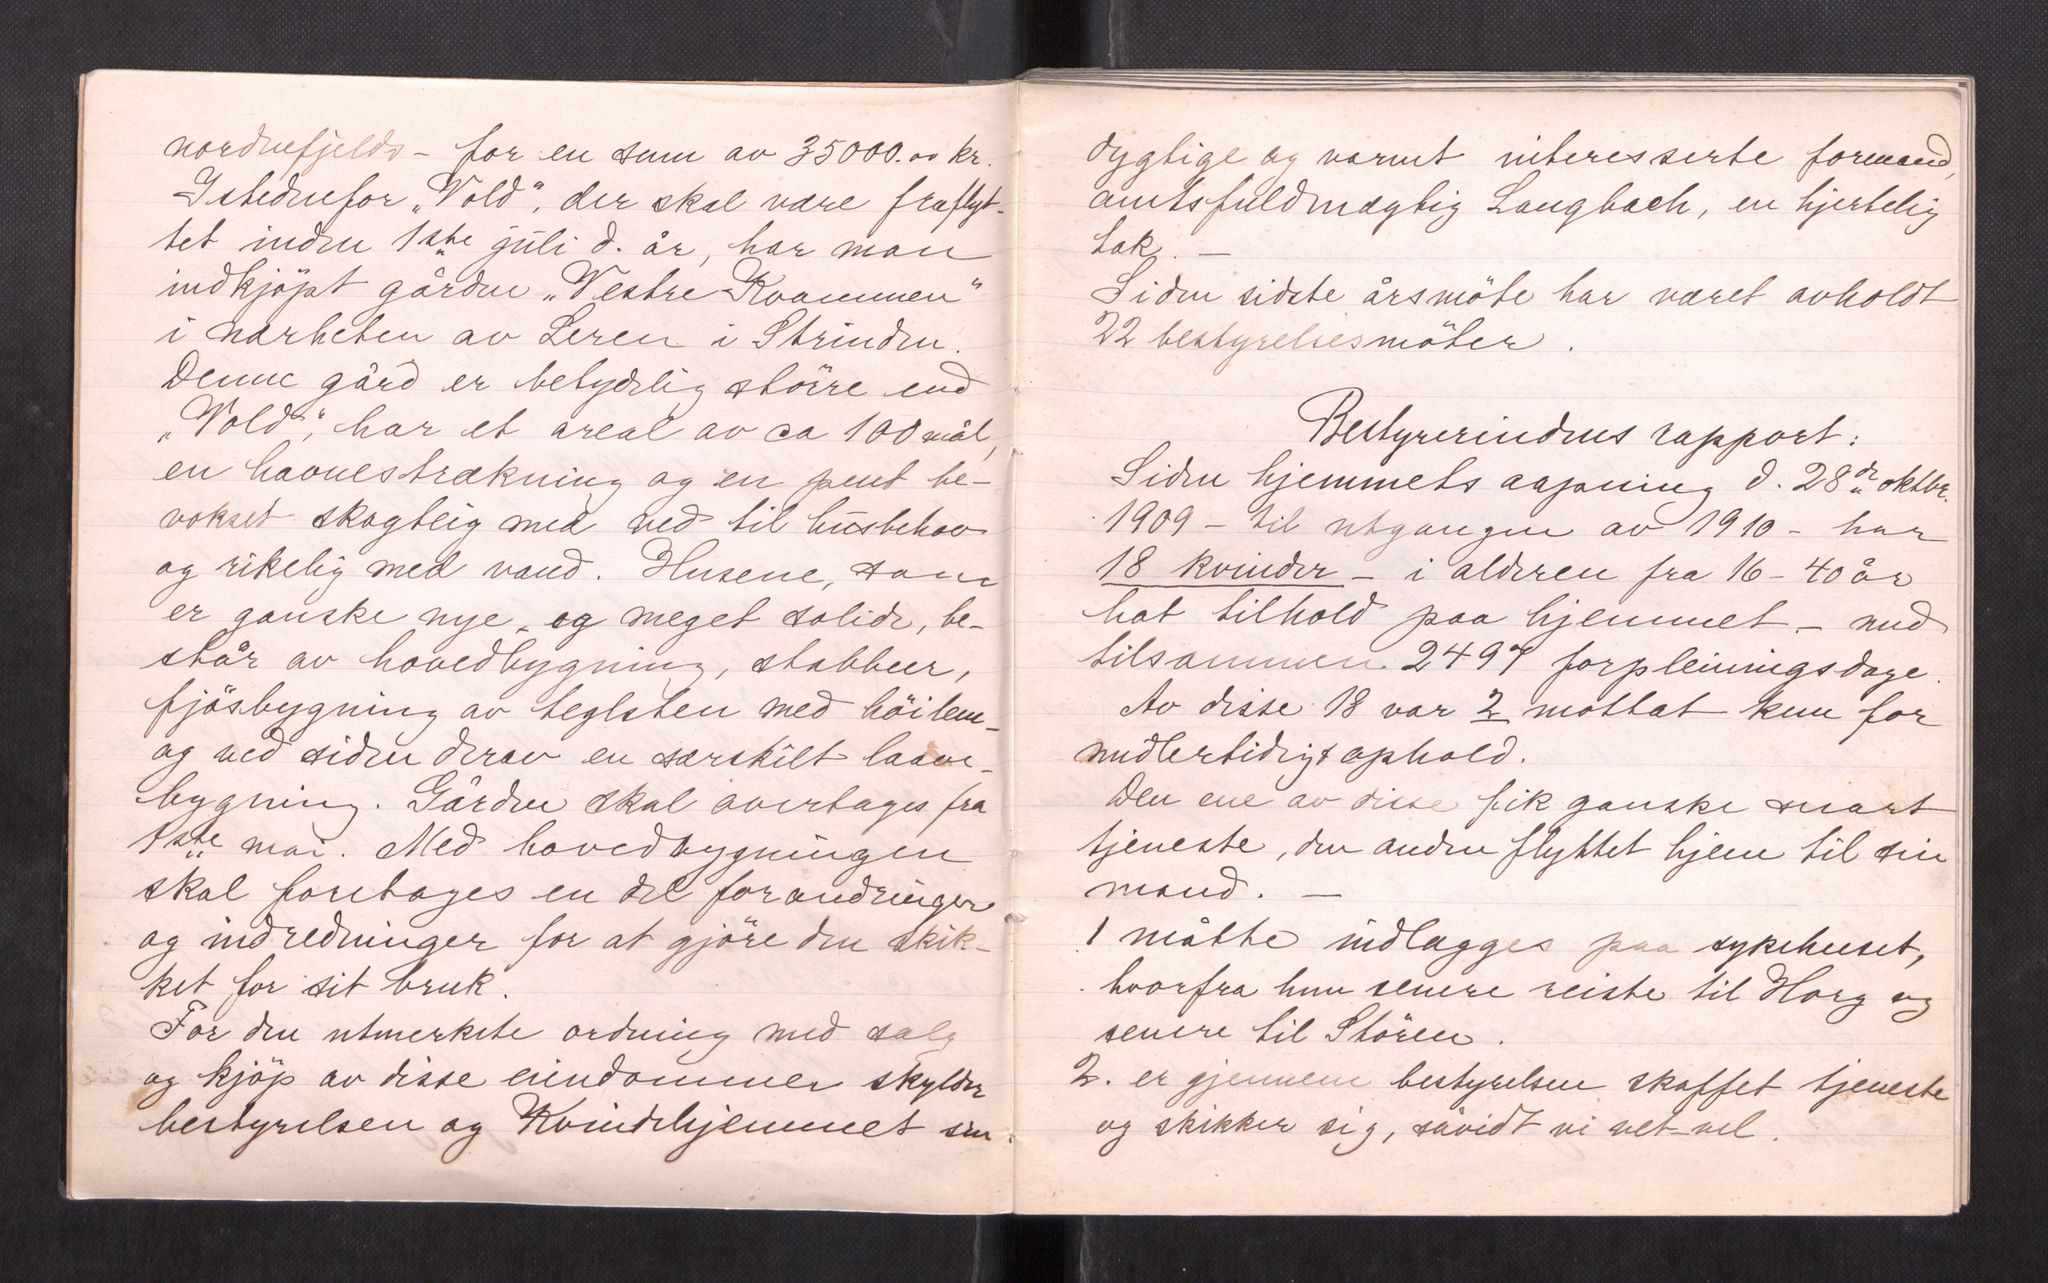 nordenfjelds – for en sum av 35000.00 kr.
Istedenfor „Vold“, der skal være fraflyt-
tet inden 1ste juli d. år, har man
indkjöpt gården „Vestre Kvammen“
i nærheten av Leren i Strinden.
Denne gård er betydelig större end
„Vold“, har et areal av ca 100 mål,
en havnestrækning og en pent be-
vokset skogteig med ved til husbehov
og rikelig med vand. Husene, som
er ganske nye og meget solide, be-
står av hovedbygning, stabbur,
fjösbygning av teglsten med höilem –
og ved siden derav en særskilt laave-
bygning. Gården skal overtages fra
1ste mai. Med hovedbygningen
skal foretages en del forandringer
og indredninger for at gjöre den skik-
ket for sit bruk.
For den utmerkete ordning med salg
og kjöp av disse eiendommer skylder
bestyrelsen og Kvindehjemmet sin
dygtige og varmt interesserte formand,
amtsfuldmægtig Langbach, en hjertelig
tak. –
Siden sidste årsmöte har været avholdt
22 bestyrelsesmöter.
Bestyrerindens rapport:
Siden hjemmets aapning d. 28de oktbr.
1909 – til utgangen av 1910 – har
18 kvinder – i alderen fra 16 – 40 år
hat tilhold paa hjemmet – med
tilsammen 2497 forpleiningsdage.
Av disse 18 var 2 mottat kun for
midlertidigt ophold.
Den ene av disse fik ganske snart
tjeneste, den anden flyttet hjem til sin
mand. –
1 måtte indlægges paa sykehuset,
hvorfra hun senere reiste til Horg og
senere til Stören.
2. er gjennem bestyrelsen skaffet tjeneste
og skikker sig, såvidt vi vet – vel.